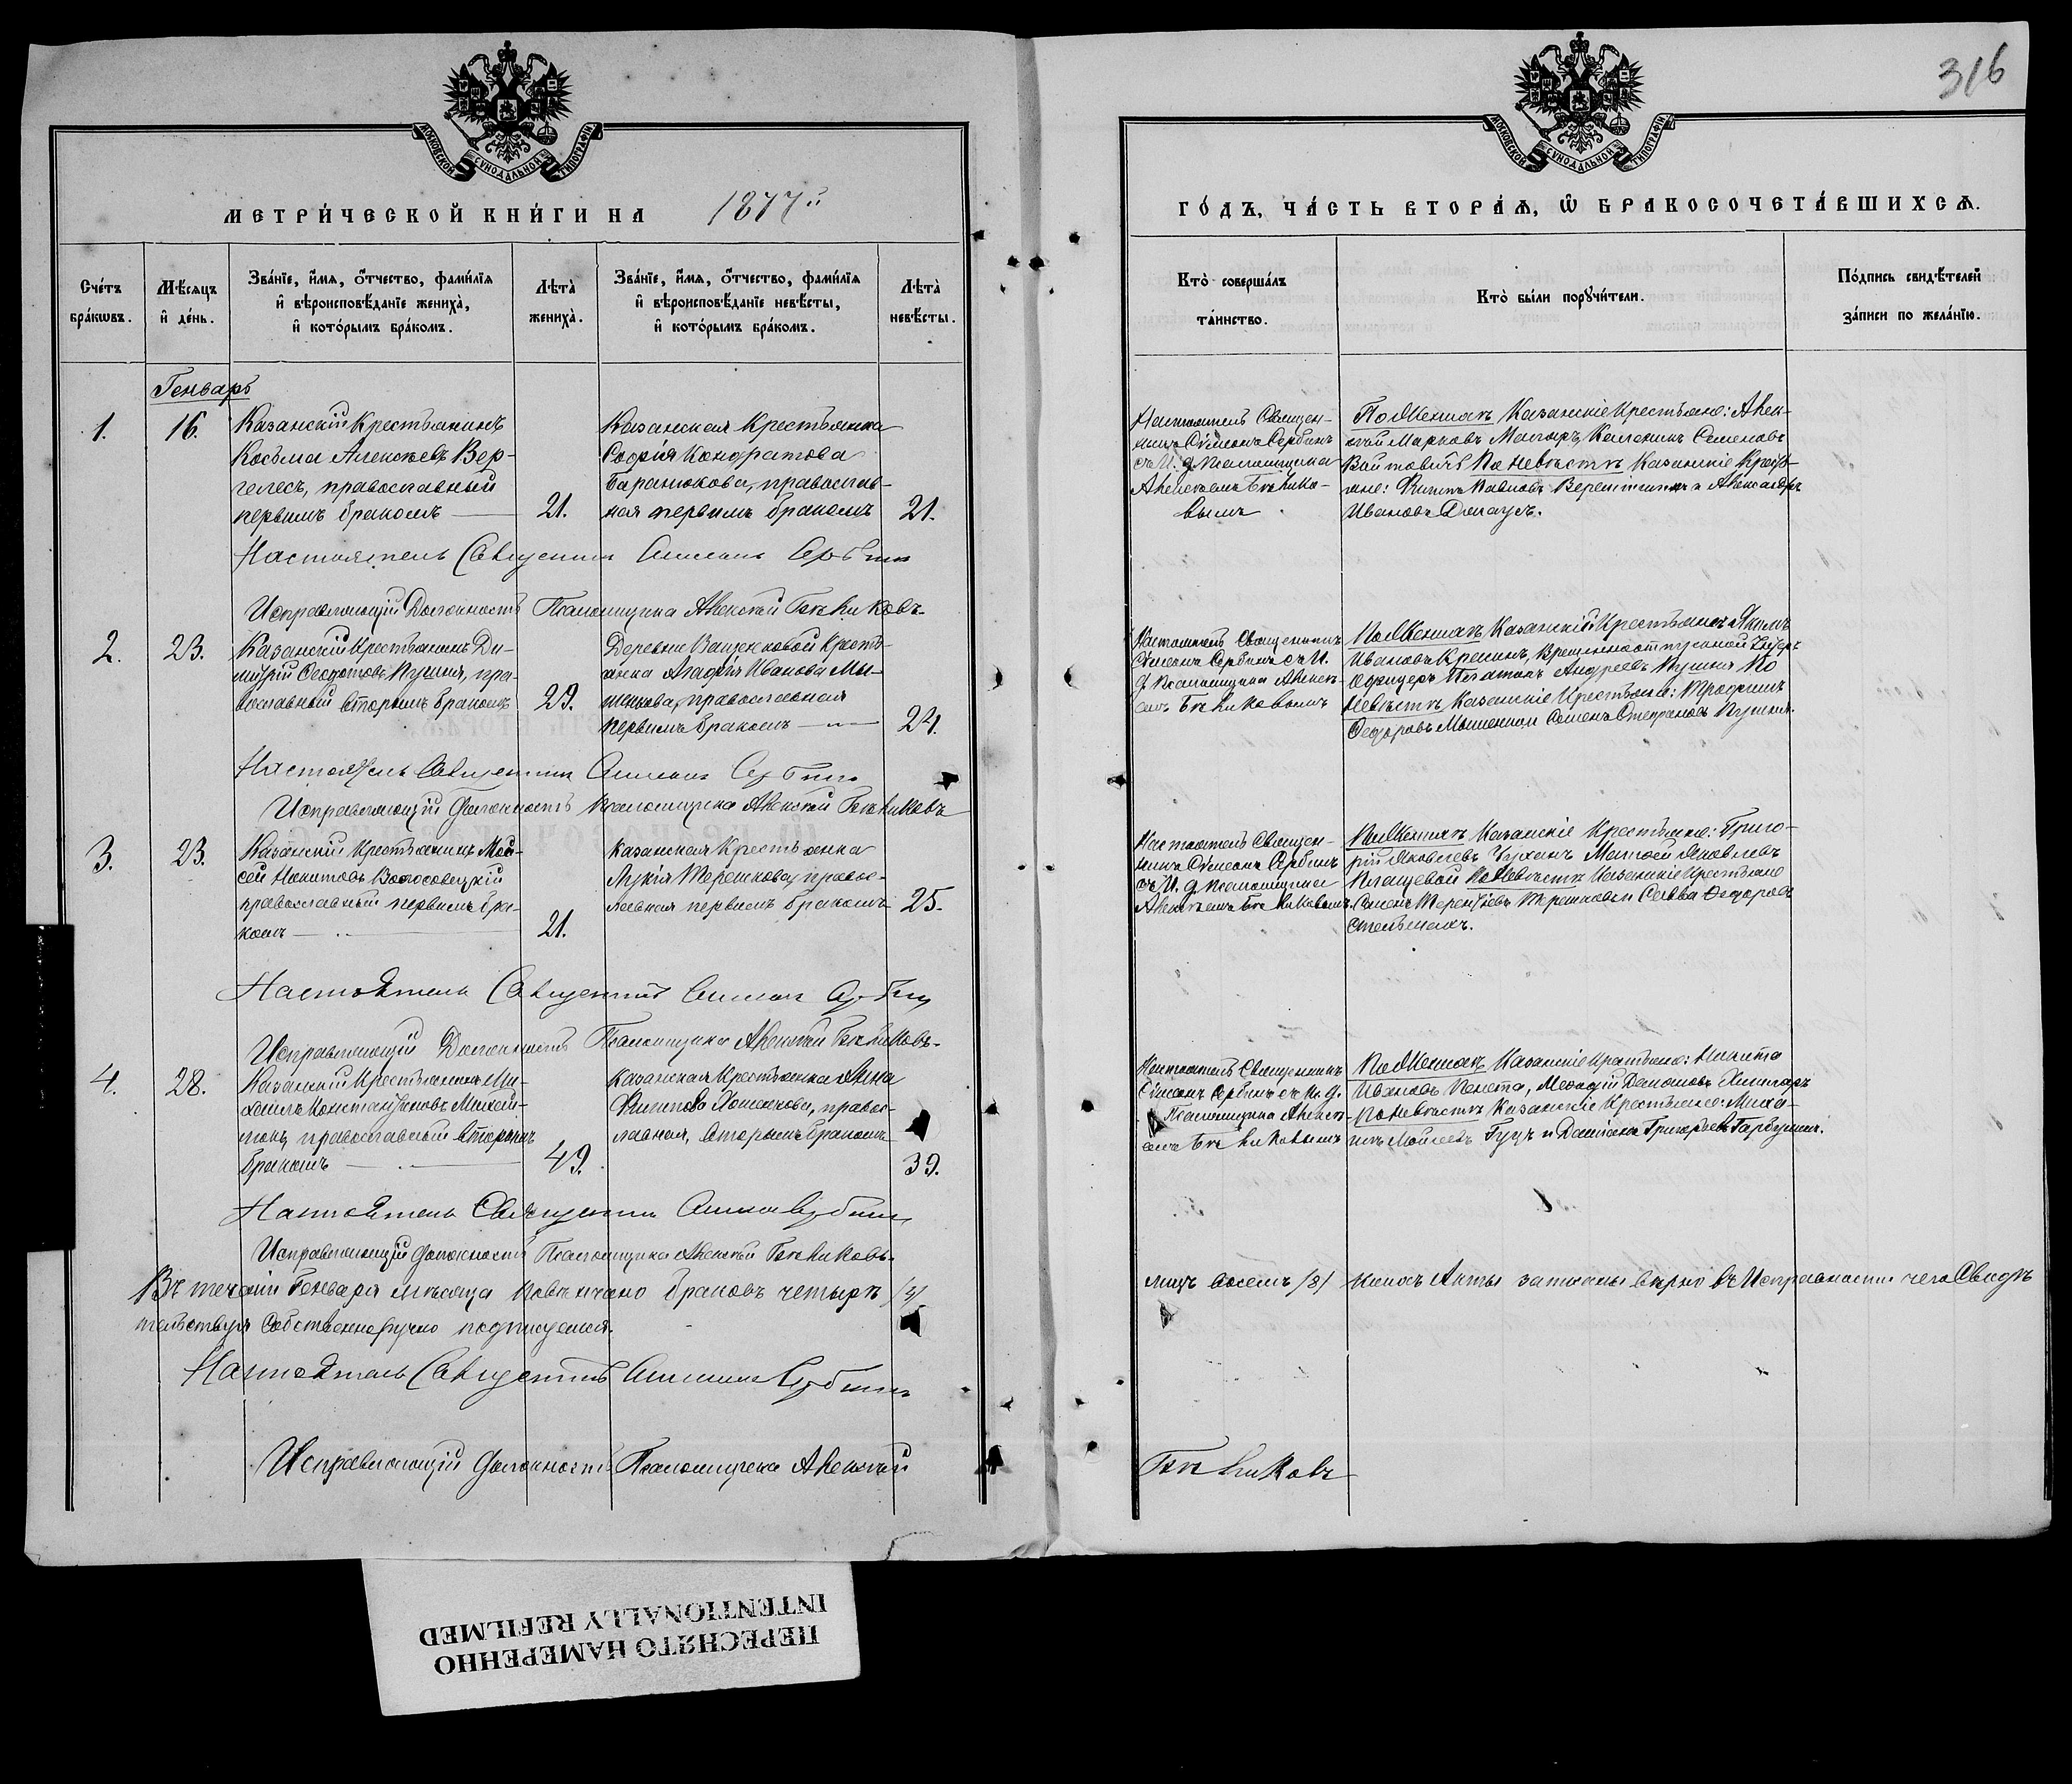 316
МОСКОВСКОЙ СѴНОДАЛЬНОЙ ТИПОГРАФІИ
МОСКОВСКОЙ СѴНОДАЛЬНОЙ ТИПОГРАФІИ
МЕТРИ́ЧЕСКОЙ КНИ́ГИ НА 1877й
ГО́ДЪ, ЧА́СТЬ ВТОРА́Ѧ, Ѿ БРАКОСОЧЕТА́ВШИХСѦ.
Сче́тъ
бра́кѡвъ.
Мѣ́сяцъ
и҆ де́нь.
Зва́нїе, и҆́мѧ, ѻ҆́тчество, фами́лїѧ
и҆ вѣроисповѣ́данїе жениха̀,
и҆ кото́рымъ бра́комъ.
Лѣта̀
жениха̀.
Зва́нїе, и҆́мѧ, ѻ҆́тчество, фами́лїѧ
и҆ вѣроисповѣ́данїе невѣ́сты,
и҆ кото́рымъ бра́комъ.
Лѣта̀
невѣ́сты.
Кто̀ соверша́лъ
та́инство.
Кто̀ бы́ли порꙋчи́тели.
По́дпись свидѣ́телей
за́писи по жела́нїю.
Генварь
1.
16.
Казанскій Крестьянинъ
Косьма Алексѣевъ Вер-
гелесъ, православный
первымъ бракомъ
21.
Казанская Крестьянка
Софія Кондратова
Баранюкова, православ-
ная первымъ бракомъ
21.
Настоятель Священ-
никъ Сѵмеонъ Сербинъ
съ И. д. Псаломщика
Алексѣемъ Бѣликo-
вымъ
По Женихѣ Казанскіе Крестьяне: Алек-
сѣй Марковъ Семеновъ
Войтовъ По Невѣстѣ Казанскіе Кресть-
яне: Павловъ и Александръ
Ивановъ
Настоятель Священникъ Симеонъ Сербинъ
Исправляющій Должность Псаломщика Алексѣй Бѣликовъ.
2.
23.
Казанскій Крестьянинъ Ди-
митрій Ѳедотовъ Пушня, пра-
вославный вторымъ бракомъ
29.
Деревни Крестъ-
янка Агафія Иванова Мы-
шенкова, православная
первымъ бракомъ
24.
Настоятель Священникъ
Сѵмеонъ Сербинъ съ И.
д. Псаломщика Алексѣ-
емъ Бѣликовымъ
По Женихѣ Казанскій Крестьянинъ Якимъ
Ивановъ
Офицеръ Андреевъ Пушня По
Невѣстѣ Казанскіе Крестьяне: Трофимъ
Ѳедоровъ Семенъ Степановъ Пушня.
Настоятель Священникъ Симеонъ Сербинъ
Исправляющій Должность Псаломщика Алексѣй Бѣликовъ
3.
23.
Казанскій Крестьянинъ Мой-
сей Никитовъ Волосовецкій
православный первымъ бра-
комъ
21.
Казанская Крестьянка
Лукія Терешкова, правос-
лавная первымъ бракомъ
25.
Настоятель Священ-
никъ Сѵмеонъ Сербинъ
съ И. д. Псаломщика
Алексѣемъ Бѣликовымъ.
По Женихѣ Казанскіе Крестьяне: Григо-
рій Яковлевъ Матвей Яковлевъ
По Невѣстѣ Казанскіе Крестьяне
Семенъ Терентіевъ Терешковъ и Савва Ѳедоровъ
Стельмахъ.
Настоятель Священникъ Симеонъ Сербинъ
Исправляющій Должность Псаломщика Алексѣй Бѣликовъ.
4.
28.
Казанскій Крестьянинъ Ми-
хаилъ Константиновъ
православный вторымъ
бракомъ
49.
Казанская Крестьянка Анна
Филипова Хоменкова, правос-
лавная, вторымъ бракомъ
39.
Настоятель Священникъ
Сѵмеонъ Сербинъ съ И. д.
Псаломщика Алексѣ-
емъ Бѣликовымъ
По Женихѣ Казанскіе Крестьяне: Никита
Ивановъ
По Невѣстѣ Казанскіе Крестьяне: Миха-
илъ Мойсеевъ Гуцъ и Даміанъ Григорьевъ
Настоятель Священникъ Симеонъ Сербинъ
Исправляющій Должность Псаломщика Алексѣй Бѣликовъ.
Въ теченіи Генваря мѣсяца повѣнчано браковъ четыре /4/ лицъ восемь /8/ Акты записаны вѣрно въ Исправности чего Свидѣ-
тельствуя Собственноручно подписуемся.
Настоятель Священникъ Симеонъ Сербинъ
Исправляющій Должность Псаломщика Алексѣй Бѣликовъ
ПЕРЕСНЯТО НАМЕРЕННО
INTENTIONALLY REFILMED